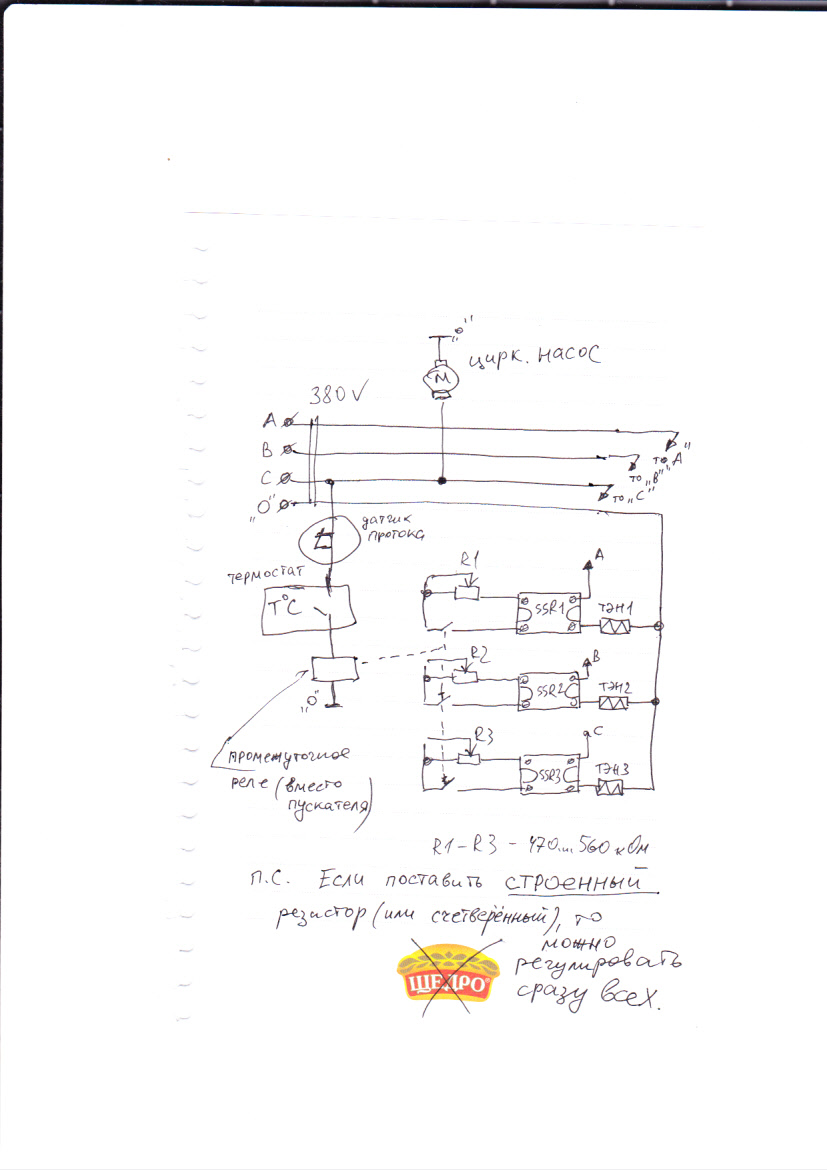 "0"
ЦИРК. НАСОС
М
380V
A
B
C
"0"
то "A"
то "B"
то "C"
датчик
протока
термостат
T°C
"0"
промежуточное
реле (вместо
пускателя)
R1
SSR1
A
ТЭН1
R2
SSR2
B
ТЭН2
R3
SSR3
C
ТЭН3
R1-R3 - 470...560 кОм
П.С. Если поставить СТРОЕННЫЙ
резистор (или счетверённый), то
можно
регулировать
сразу всех.
ЩЕДРО